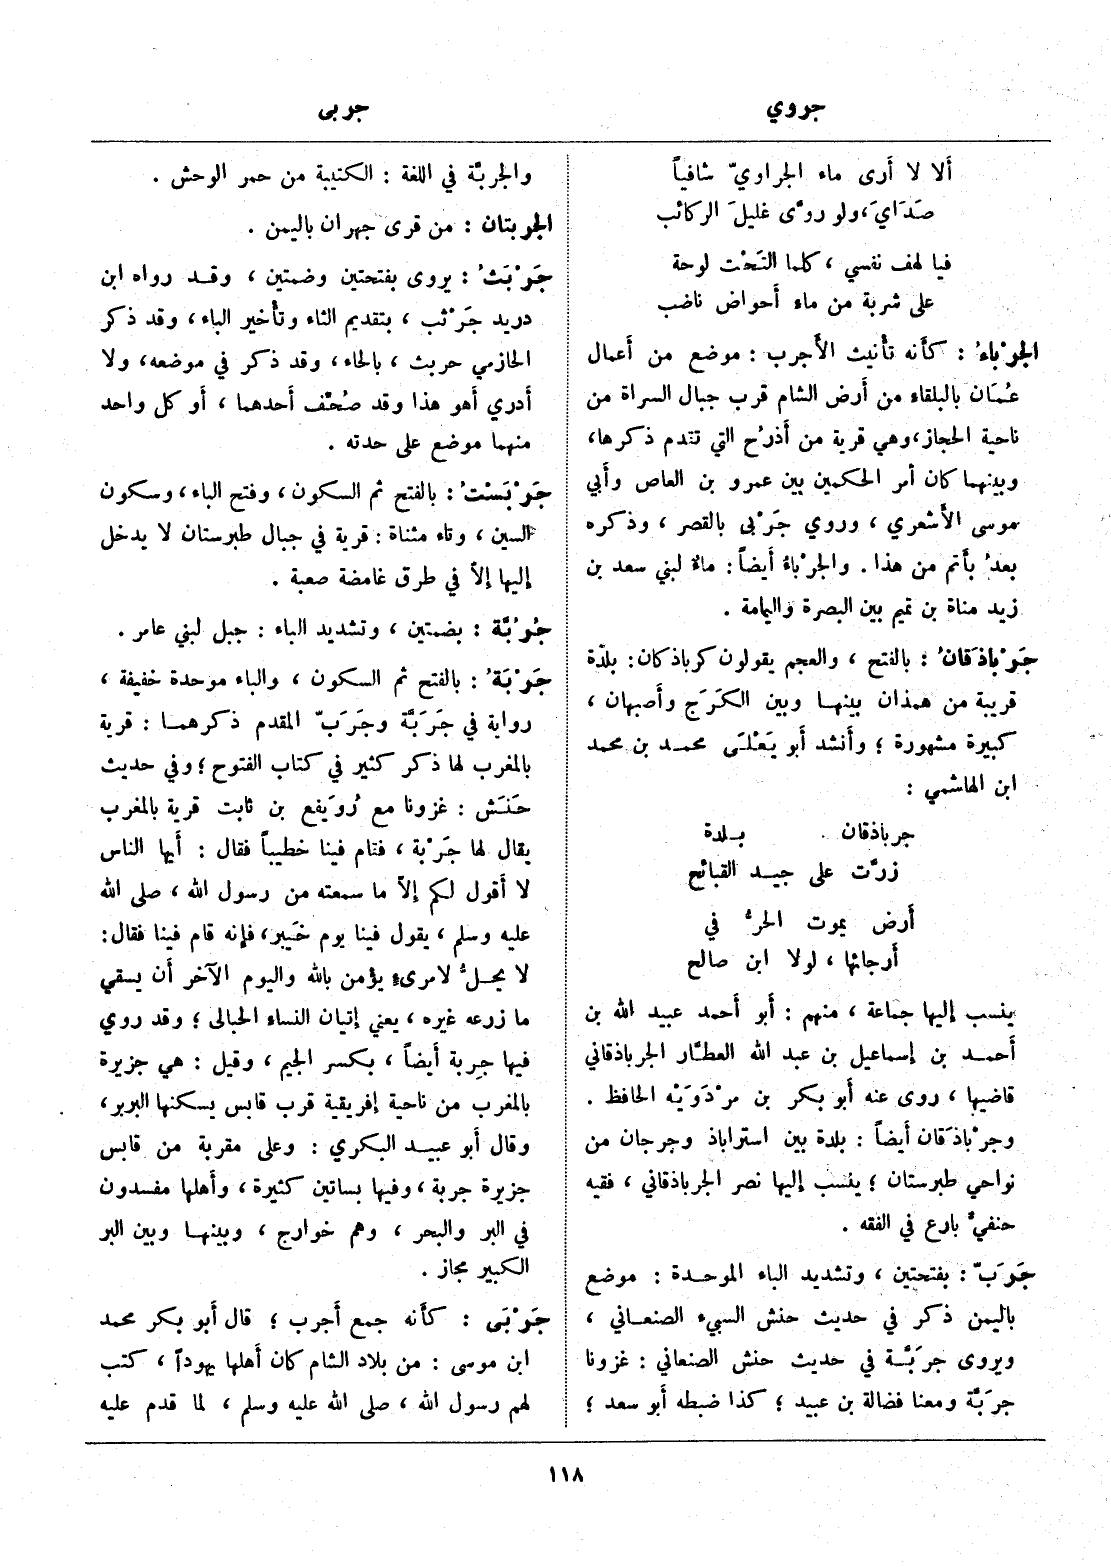 جروي
جربى
ألا لا أرى ماء الجراويّ شافياً
صَدَايَ، ولو روّى غليلَ الركائب
فيا لهف نفسي، كلما التَحْت لوحة
على شربة من ماء أَحواض ناضب
الجَرْباءُ : كأنه تأنيث الأَجرب : موضع من أَعمال
عُمَان بالبلقاء من أَرض الشام قرب جبال السراة من
ناحية الحجاز، وهي قرية من أَذرُح التي تقدم ذكرها،
وبينهما كان أمر الحكمين بين عمرو بن العاص وأَبي
موسى الأَشعري ، وروي جَرْبى بالقصر ، وذكره
بعدُ بأَتم من هذا . والجرْباءُ أَيضاً : ماءٌ لبني سعد بن
زيد مناة بن تميم بين البصرة واليمامة .
جَرْباذَقانُ : بالفتح ، والعجم يقولون كرباذكان : بلدة
قريبة من همذان بينها وبين الكَرَج وأَصبهان ،
كبيرة مشهورة ؛ وأَنشد أَبو يَعْلَى محمد بن محمد
ابن الهاشمي :
جرباذقان بلدة
زرّت على جيد القبائح
أَرض يموت الحرُّ في
أَرجائها ، لولا ابن صالح
ينسب إليها جماعة ، منهم : أَبو أَحمد عبيد الله بن
أَحمد بن إسماعيل بن عبد الله العطَّار الجرباذقاني
قاضيها ، روى عنه أَبو بكر بن مرْدَوَيْه الحافظ .
وجرْباذَقان أَيضاً : بلدة بين استراباذ وجرجان من
نواحي طبرستان ؛ ينسب إليها نصر الجرباذقاني ، فقيه
حنفيٌّ بارع في الفقه .
جَرَبّ : بفتحتين ، وتشديد الباء الموحدة : موضع
باليمن ذكر في حديث حنش السبيء الصنعاني ،
ويروى جرَبَّة في حديث حنش الصنعاني : غزونا
جرَبَّة ومعنا فضالة بن عبيد ؛ كذا ضبطه أَبو سعد ؛
والجربَّة في اللغة : الكتيبة من حمر الوحش .
الجربتان : من قرى جهران باليمن .
جَرْبَثُ : يروى بفتحتين وضمتين ، وقد رواه ابن
دريد جَرْثب ، بتقديم الثاء وتأْخير الباء ، وقد ذكر
الحازمي حربث ، بالحاء ، وقد ذكر في موضعه ، ولا
أَدري أَهو هذا وقد صُحّف أَحدهما ، أَو كل واحد
منهما موضع على حدته .
جَرْبَسْتُ : بالفتح ثم السكون ، وفتح الباء ، وسكون
السين ، وتاء مثناة : قرية في جبال طبرستان لا يدخل
إليها إلاّ في طرق غامضة صعبة .
جُرُبَّة : بضمتين ، وتشديد الباء : جبل لبني عامر .
جَرْبَةُ : بالفتح ثم السكون ، والباء موحدة خفيفة ،
رواية في جَرَبَّة وجَرَبّ المقدم ذكرهما : قرية
بالمغرب لها ذكر كثير في كتاب الفتوح ؛ وفي حديث
حَنَش : غزونا مع رُوَيفع بن ثابت قرية بالمغرب
يقال لها جَرْبة ، فقام فينا خطيباً فقال : أَيها الناس
لا أَقول لكم إلاّ ما سمعته من رسول الله ، صلى الله
عليه وسلم ، يقول فينا يوم خَيبر ، فإنه قام فينا فقال :
لا يحلُّ لامرىءٍ يؤمن بالله واليوم الآخر أَن يسقي
ما زرعه غيره ، يعني إتيان النساء الحبالى ؛ وقد روي
فيها جِربة أَيضاً ، بكسر الجيم ، وقيل : هي جزيرة
بالمغرب من ناحية إفريقية قرب قابس يسكنها البربر ،
وقال أَبو عبيد البكري : وعلى مقربة من قابس
جزيرة جربة ، وفيها بساتين كثيرة ، وأَهلها مفسدون
في البر والبحر ، وهم خوارج ، وبينها وبين البر
الكبير مجاز .
جَرْبَى : كأَنه جمع أَجرب ؛ قال أَبو بكر محمد
ابن موسى : من بلاد الشام كان أَهلها يهوداً ، كتب
لهم رسول الله ، صلى الله عليه وسلم ، لما قدم عليه
١١٨